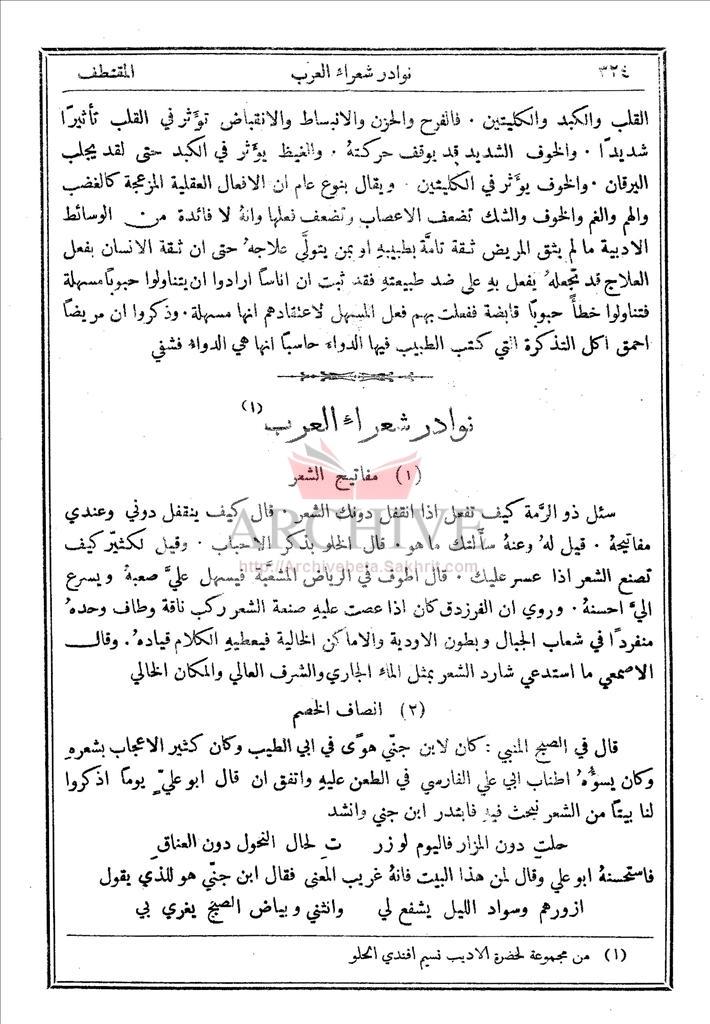 ٣٢٤ نوادر شعراء العرب المقتطف
القلب والكبد والكليتين . فالفرح والحزن والانبساط والانقباض تؤَثر في القلب تأثيرًا
شديدًا . والخوف الشديد قد يوقف حركتهُ . والغيظ يؤَثر في الكبد حتى لقد يجلب
اليرقان . والخوف يؤَثر في الكليتين . ويقال بنوع عام ان الافعال العقلية المزعجة كالغضب
والهم والغم والخوف والشك تضعف الاعصاب وتضعف فعلها وانهُ لا فائدة من الوسائط
الادبية ما لم يثق المريض ثقة تامَّة بطبيبهِ او بمن يتولَّى علاجهُ حتى ان ثقة الانسان بفعل
العلاج قد تجعلهُ يفعل بهِ على ضد طبيعتهِ فقد ثبت ان اناسًا ارادوا ان يتناولوا حبوبًا مسهلة
فتناولوا خطأً حبوبًا قابضة ففعلت بهم فعل المسهل لاعتقادهم انها مسهلة . وذكروا ان مريضًا
احمق اكل التذكرة التي كتب الطبيب فيها الدواء حاسبًا انها هي الدواء فشفي
نوادر شعراء العرب (١)
(١) مفاتيح الشعر
سئل ذو الرمَّة كيف تفعل اذا انقفل دونك الشعر . قال كيف ينقفل دوني وعندي
مفاتيحهُ . قيل لهُ وعنهُ سأَلتك ما هو . قال الخلو بذكر الاحباب . وقيل لكثيّر كيف
تصنع الشعر اذا عسر عليك . قال اطوف في الرياض المعشبة فيسهل عليَّ صعبهُ ويسرع
اليَّ احسنهُ . وروي ان الفرزدق كان اذا عصت عليهِ صنعة الشعر ركب ناقة وطاف وحدهُ
منفردًا في شعاب الجبال وبطون الاودية والاماكن الخالية فيعطيهِ الكلام قيادهُ . وقال
الاصمعي ما استدعي شارد الشعر بمثل الماء الجاري والشرف العالي والمكان الخالي
(٢) انصاف الخصم
قال في الصبح المنبي : كان لابن جنّي هوًى في ابي الطيب وكان كثير الاعجاب بشعرهِ
وكان يسوُّهُ اطناب ابي علي الفارسي في الطعن عليهِ واتفق ان قال ابو عليّ يومًا اذكروا
لنا بيتًا من الشعر نبحث فيهِ فابتدر ابن جني وانشد
حلتِ دون المزار فاليوم لو زر تِ لحال النحول دون العناقِ
فاستحسنهُ ابو علي وقال لمن هذا البيت فانهُ غريب المعنى فقال ابن جنّي هو للذي يقول
ازورهم وسواد الليل يشفع لي وانثني وبياض الصبح يغري بي
(١) من مجموعة لحضرة الاديب نسيم افندي الحلو
ARCHIVE
http://Archivebeta.Sakhrit.com